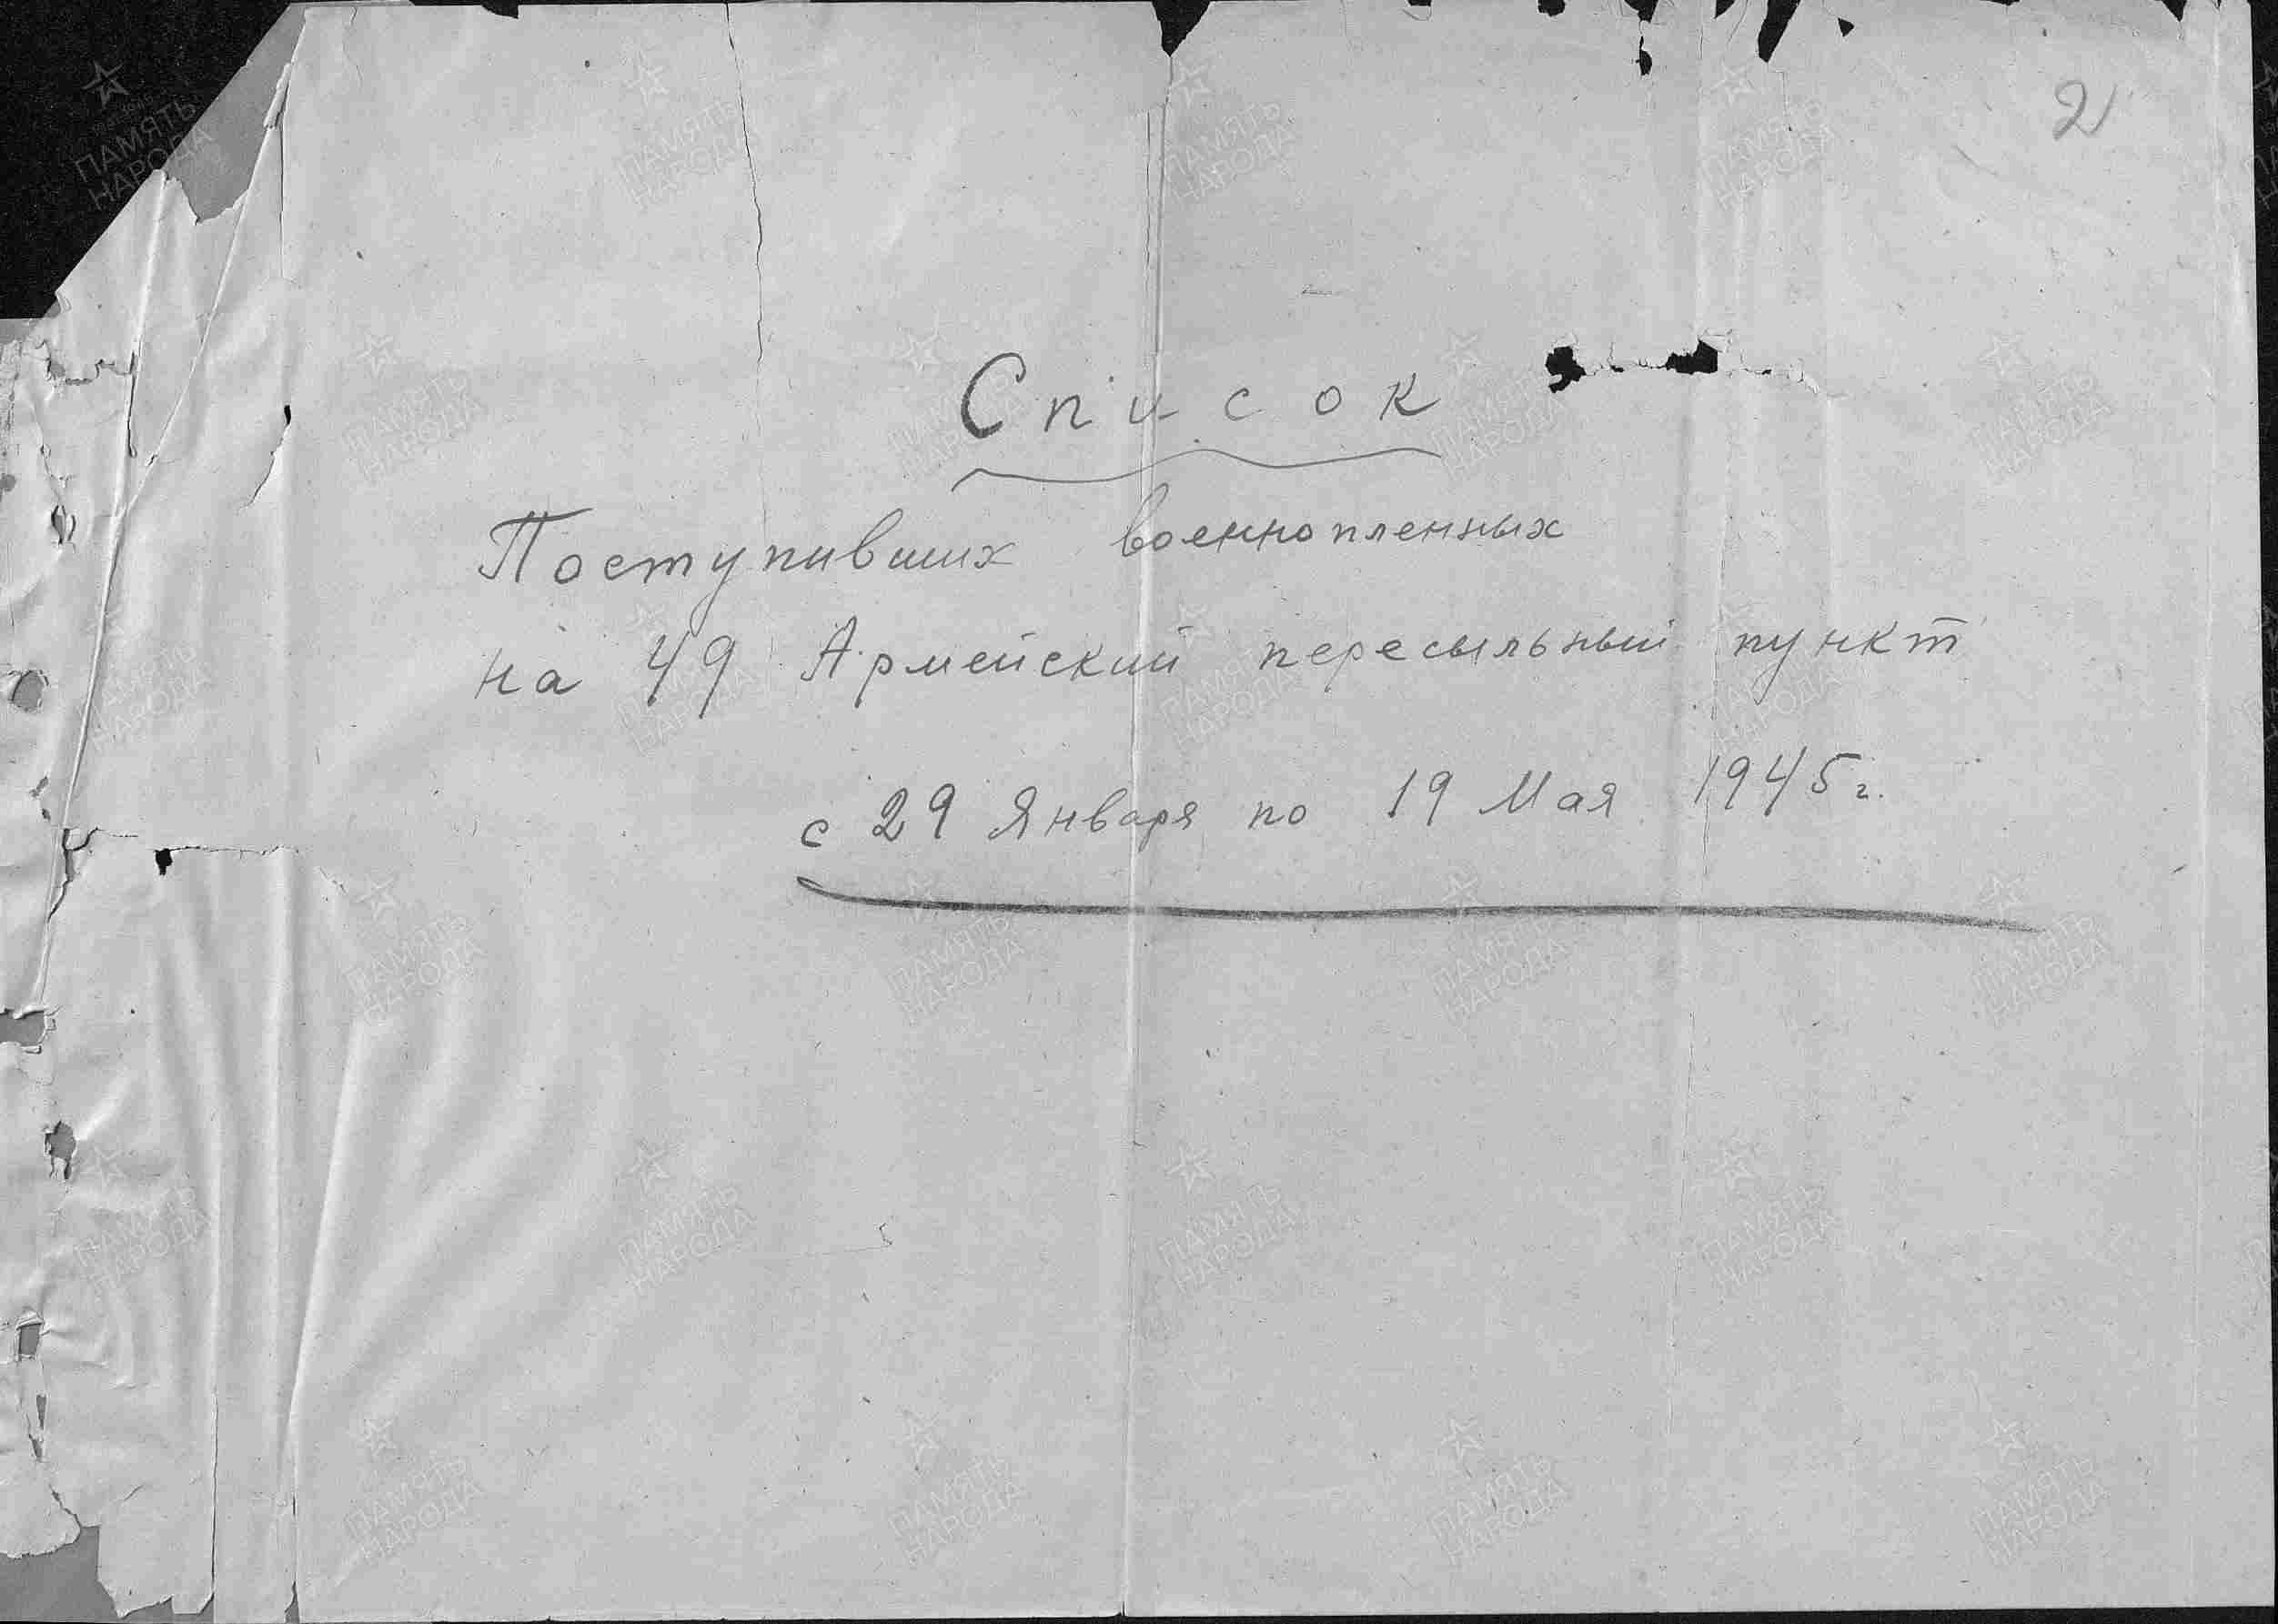 2
Список
Поступивших военнопленных
на 49 Армейский пересыльный пункт
с 29 Января по 19 Мая 1945 г.
ПАМЯТЬ
НАРОДА